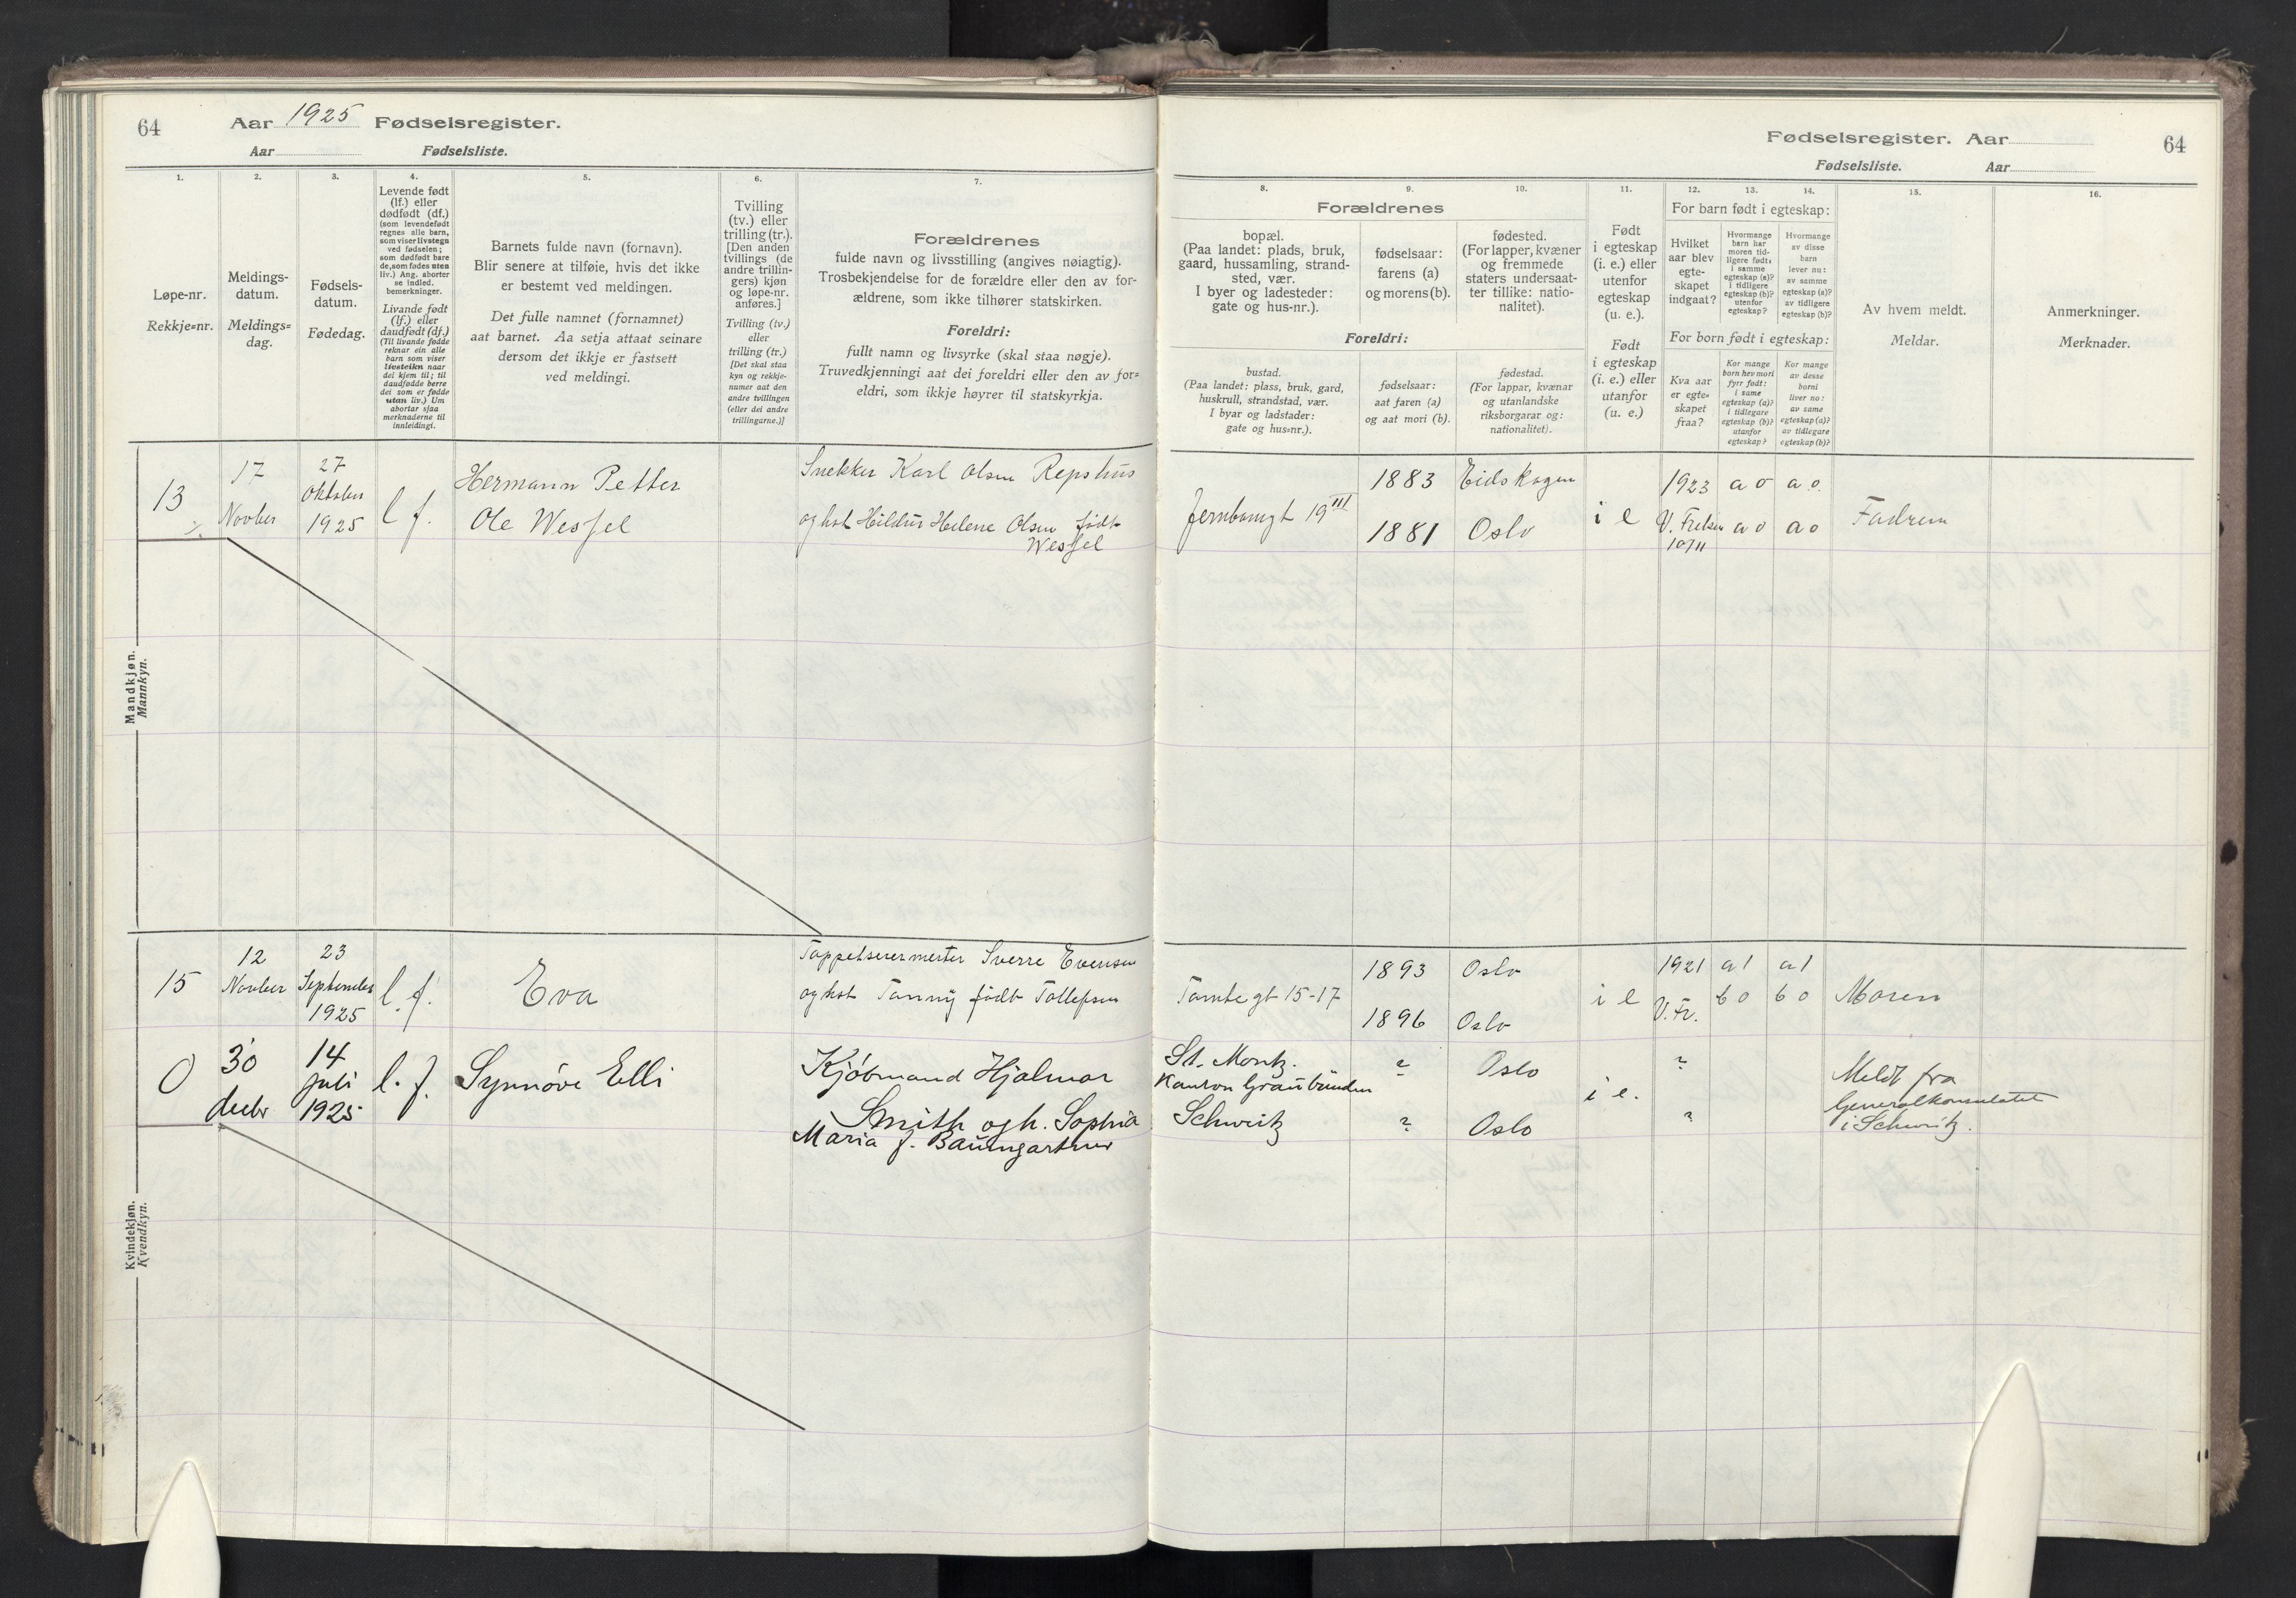 64
Aar 1925 Fødselsregister.
Aar Fødselsliste.
1.
2.
3.
4.
5.
6.
7.
Løpe-nr.
Rekkje=nr.
Meldings-
datum.
Meldings=
dag.
Fødsels-
datum.
Fødedag.
Levende født
(lf.) eller
dødfødt (df.)
(som levendefødt
regnes alle barn,
som viser livstegn
ved fødselen;
som dødfødt bare
de, som fødes uten
liv.) Ang. aborter
se indled.
bemerkninger.
Livande født
(lf.) eller
daudfødt (df.)
(Til livande fødde
reknar ein alle
barn som viser
livsteikn naar
dei kjem til; til
daudfødde berre
dei som er fødde
utan liv.) Um
abortar sjaa
merknaderne til
innleidingi.
Barnets fulde navn (fornavn).
Blir senere at tilføie, hvis det ikke
er bestemt ved meldingen.
Det fulle namnet (fornamnet)
aat barnet. Aa setja attaat seinare
dersom det ikkje er fastsett
ved meldingi.
Tvilling
(tv.) eller
trilling (tr.).
[Den anden
tvillings (de
andre trillin-
gers) kjøn
og løpe-nr.
anføres.]
Tvilling (tv.)
eller
trilling (tr.)
[Det skal staa
kyn og rekkje-
numer aat den
andre tvillingen
(eller dei andre
trillingarne.)]
Forældrenes
fulde navn og livsstilling (angives nøiagtig).
Trosbekjendelse for de forældre eller den av for-
ældrene, som ikke tilhører statskirken.
Foreldri:
fullt namn og livsyrke (skal staa nøgje).
Truvedkjenningi aat dei foreldri eller den av for=
eldri, som ikkje høyrer til statskyrkja.
Mandkjøn.
Mannkyn.
13
17
Novber
27
Oktober
1925
l f.
Hermann Petter
Ole Wessel
Snekker Karl Olsen Repshus
og hst Hildur Helene Olsen født
Wessel
Kvindekjøn.
Kvendkyn.
15
12
Novber
23
September
1925
l. f.
Eva
Tappetserermester Sverre Evensen
og hst Fanny født Tollefsen
0
30
decbr
14
juli
1925
l. f.
Synnøve Elli
Kjøbmand Hjalmar
Smith og h. Sophia
Maria f. Baumgartner
Fødselsregister. Aar
64
Fødselsliste. Aar
8.
9.
10.
11.
12.
13.
14.
15.
16.
Forældrenes
bopæl.
(Paa landet: plads, bruk,
gaard, hussamling, strand-
sted, vær.
I byer og ladesteder:
gate og hus-nr.).
fødselsaar:
farens (a)
og morens (b).
fødested.
(For lapper, kvæner
og fremmede
staters undersaat-
ter tillike: natio-
nalitet).
Foreldri:
bustad.
(Paa landet: plass, bruk, gard,
huskrull, strandstad, vær.
I byar og ladstader:
gate og hus=nr.).
fødselsaar:
aat faren (a)
og aat mori (b).
fødestad.
(For lappar, kvænar
og utanlandske
riksborgarar og:
nationalitet).
Født
i egteskap
(i. e.) eller
utenfor
egteskap
(u. e.).
Født
i egteskap
(i. e.) eller
utanfor
(u. e.)
For barn født i egteskap:
Hvilket
aar blev
egte-
skapet
indgaat?
Hvormange
barn har
moren tid-
ligere født,
i samme
egteskap (a)?
i tidligere
egteskap (b)?
utenfor
egteskap?
Hvormange
av disse
barn
lever nu:
av samme
egteskap (a)?
av tidligere
egteskap (b)?
For born født i egteskap:
Kva aar
er egte=
skapet
fraa?
Kor mange
born hev mori
fyrr født:
i same
egteskap (a)?
i tidlegare
egteskap (b)?
utanfor
egteskap?
Kor mange
av desse
borni
liver no:
av same
egteskap (a)?
av tidlegare
egteskap (b)?
Av hvem meldt.
Meldar.
Anmerkninger.
Merknader.
Jernbanegt 19 III
1883
1881
Eidskogen
Oslo
i e
1923
V. Frelser
10/11
a o
a o
a o.
a o
Fadren
Tomtegt 15-17
1893
1896
Oslo
Oslo
i e
1921
V. Fr.
a 1
b o
a 1
b o
Moren
St. Moritz.
Kanton Graubünden
Schweitz
?
?
Oslo
Oslo
i e.
?
"
Meldt fra
Generalkonsulatet
i Schweitz.